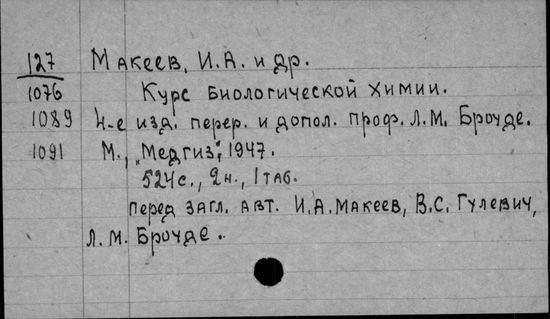 127 Макеев, И.А. и др.
1076 Курс биологической химии.
1089 4-е изд. перер. и допол. проф. Л.М. Броуде.
1091 М., „Медгиз", 1947.
524с., 2н., 1 таб.
перед загл. авт. И.А. Макеев, В.С. Гулевич,
Л.М. Броуде.